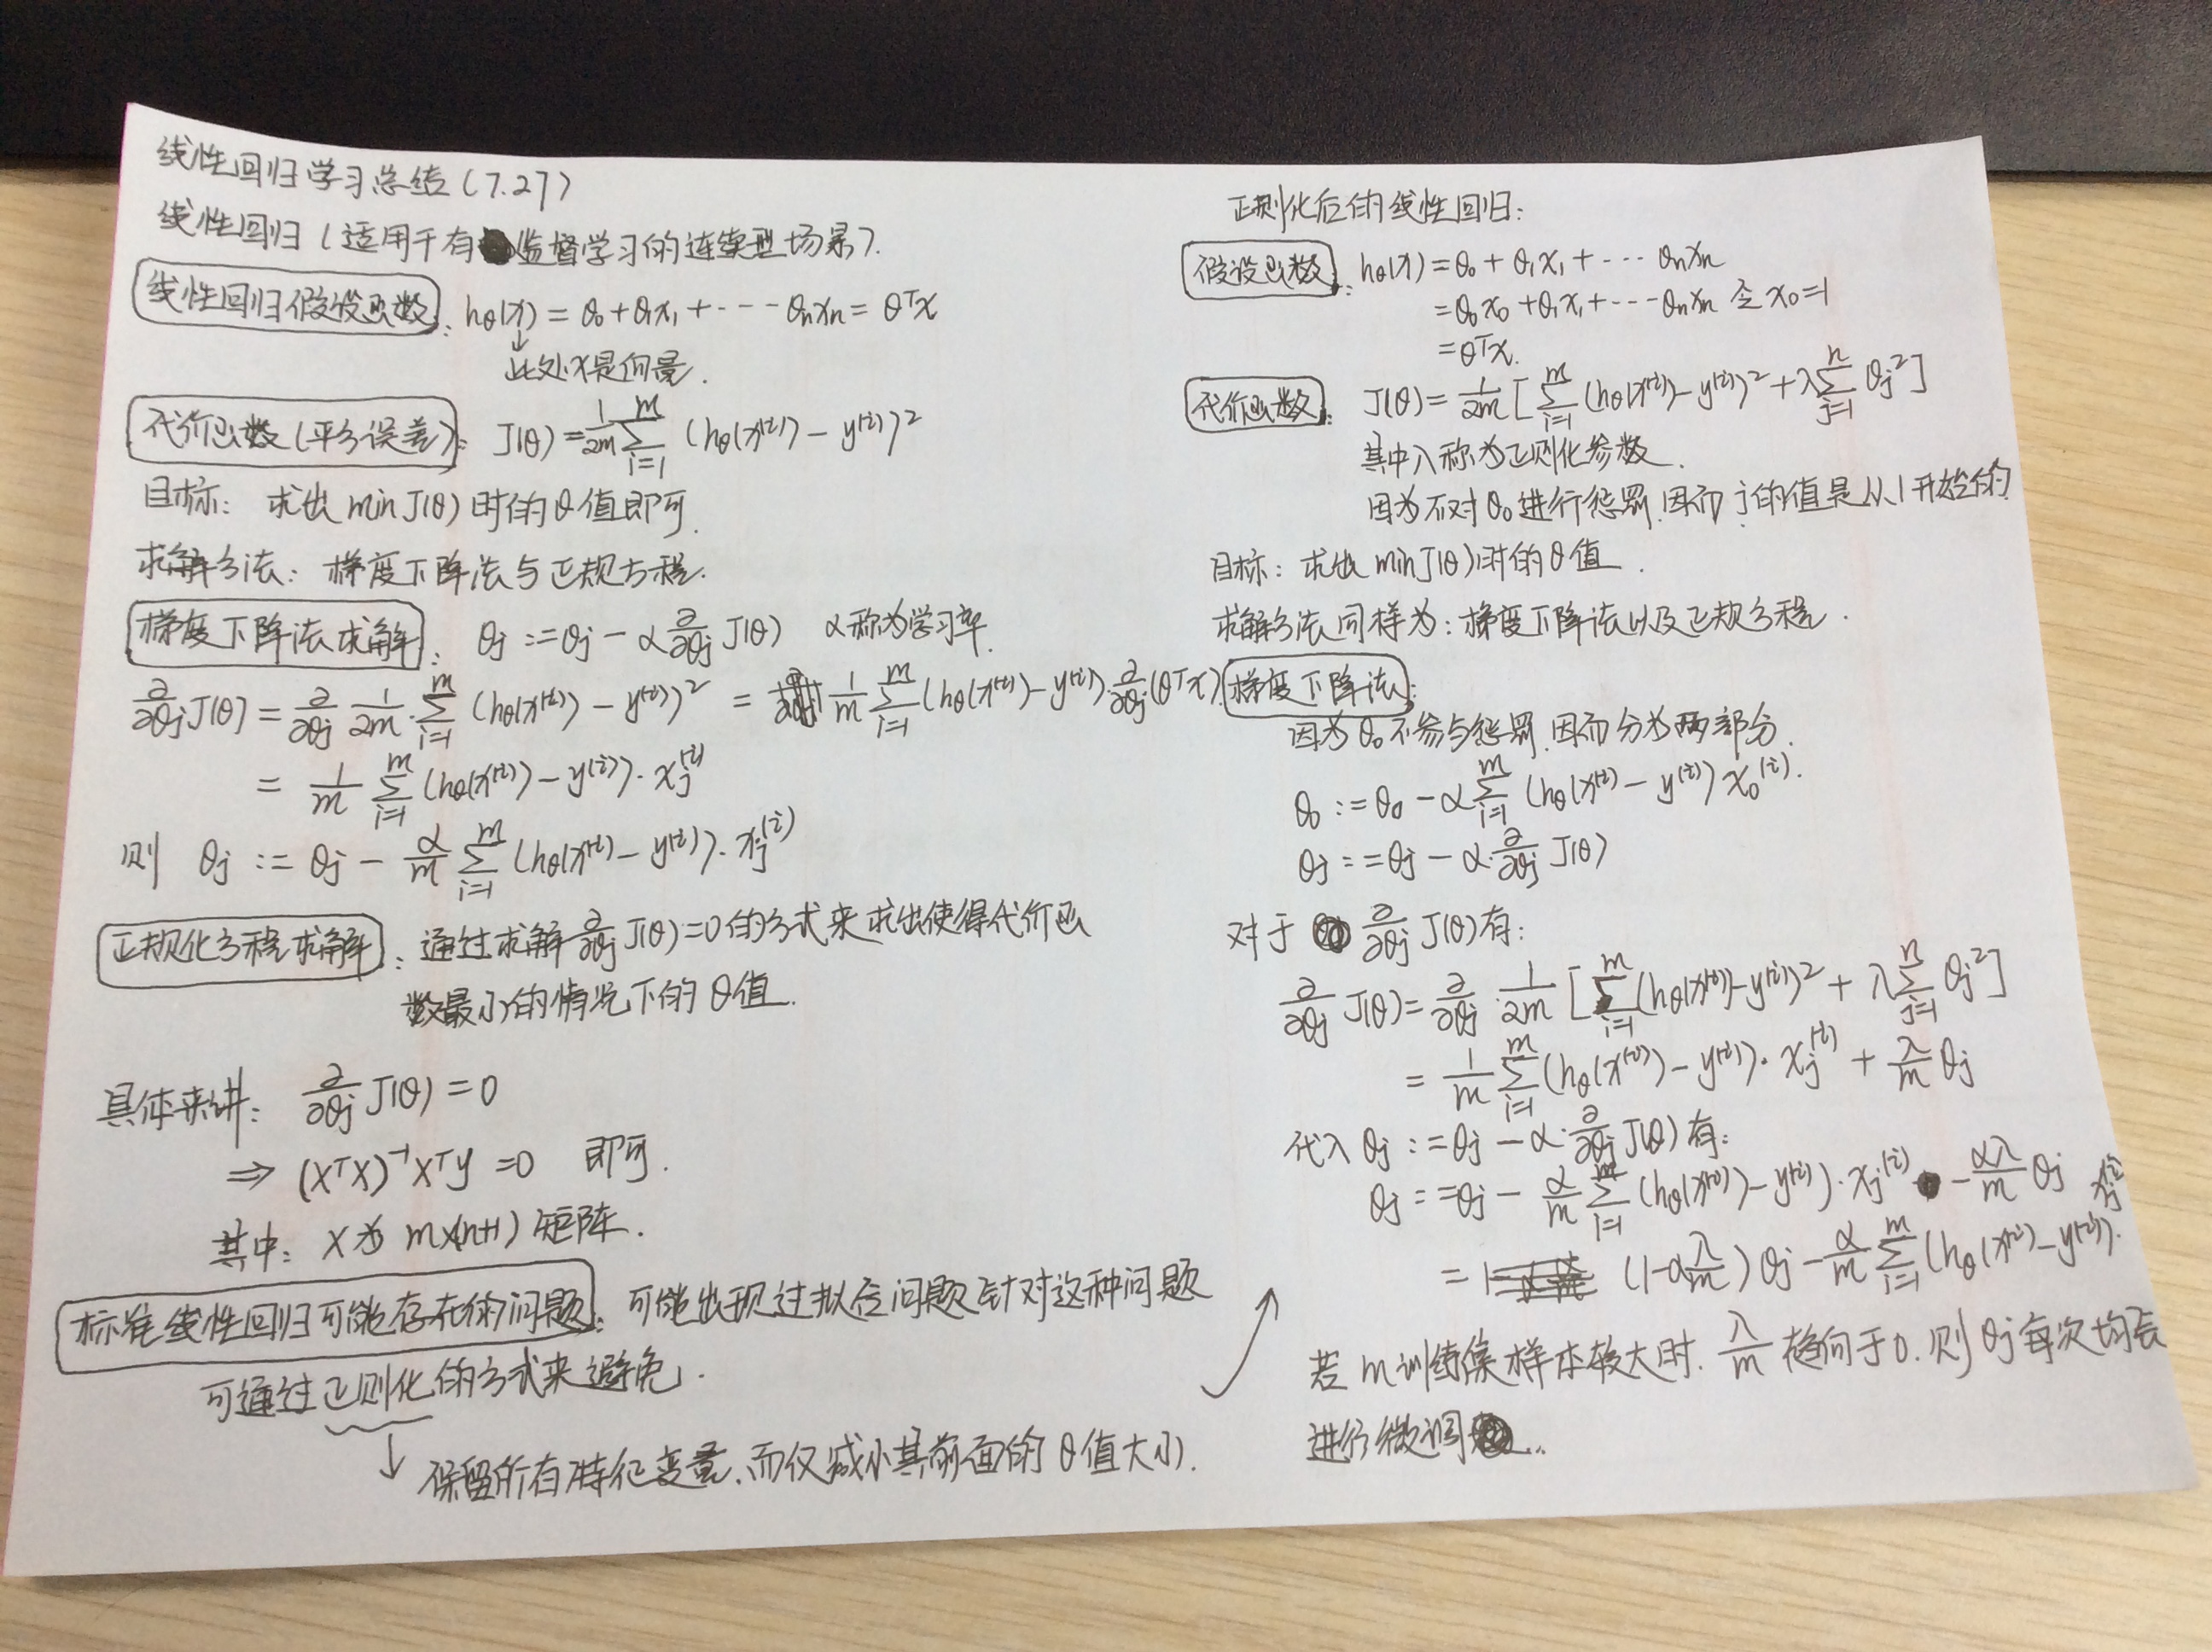 线性回归学习总结(7.27)
线性回归(适用于有监督学习的连续型场景).
线性回归假设函数: hθ(x) = θ₀ + θ₁x₁ + --- θₙxₙ = θᵀx
↓
此处x是向量.
代价函数(平方误差): J(θ) = 1/2m ∑_{i=1}^{m} (hθ(x⁽ⁱ⁾) - y⁽ⁱ⁾)²
目标: 求出 min J(θ) 时的θ值即可.
求解方法: 梯度下降法与正规方程.
梯度下降法求解: θj := θj - α ∂/∂θj J(θ) α称为学习率.
∂/∂θj J(θ) = ∂/∂θj 1/2m · ∑_{i=1}^{m} (hθ(x⁽ⁱ⁾) - y⁽ⁱ⁾)² = 1/m ∑_{i=1}^{m} (hθ(x⁽ⁱ⁾) - y⁽ⁱ⁾) · ∂/∂θj (θᵀx)
= 1/m ∑_{i=1}^{m} (hθ(x⁽ⁱ⁾) - y⁽ⁱ⁾) · xj⁽ⁱ⁾
则 θj := θj - α/m ∑_{i=1}^{m} (hθ(x⁽ⁱ⁾) - y⁽ⁱ⁾) · xj⁽ⁱ⁾
正规化方程求解: 通过求解 ∂/∂θj J(θ) = 0 的方式来求出使得代价函
数最小的情况下的θ值.
具体来讲: ∂/∂θj J(θ) = 0
⇒ (XᵀX)⁻¹Xᵀy = 0 即可.
其中: X为 m×(n+1) 矩阵.
标准线性回归可能存在的问题: 可能出现过拟合问题针对这种问题
可通过正则化的方式来避免.
↓ 保留所有特征变量,而仅减小其前面的θ值大小.
正则化后的线性回归:
假设函数: hθ(x) = θ₀ + θ₁x₁ + --- θₙxₙ
= θ₀x₀ + θ₁x₁ + --- θₙxₙ 令 x₀=1
= θᵀx.
代价函数: J(θ) = 1/2m [∑_{i=1}^{m} (hθ(x⁽ⁱ⁾) - y⁽ⁱ⁾)² + λ∑_{j=1}^{n} θj²]
其中λ称为正则化参数.
因为不对θ₀进行惩罚,因而j的值是从1开始的
目标: 求出 min J(θ) 时的θ值.
求解方法同样为: 梯度下降法以及正规方程.
梯度下降法:
因为θ₀不参与惩罚,因而分为两部分.
θ₀ := θ₀ - α∑_{i=1}^{m} (hθ(x⁽ⁱ⁾ - y⁽ⁱ⁾) x₀⁽ⁱ⁾.
θj := θj - α · ∂/∂θj J(θ)
对于 ∂/∂θj J(θ)有:
∂/∂θj J(θ) = ∂/∂θj · 1/2m [∑_{i=1}^{m} (hθ(x⁽ⁱ⁾) - y⁽ⁱ⁾)² + λ∑_{j=1}^{n} θj²]
= 1/m ∑_{i=1}^{m} (hθ(x⁽ⁱ⁾) - y⁽ⁱ⁾) · xj⁽ⁱ⁾ + λ/m θj
代入 θj := θj - α · ∂/∂θj J(θ) 有:
θj := θj - α/m ∑_{i=1}^{m} (hθ(x⁽ⁱ⁾) - y⁽ⁱ⁾) · xj⁽ⁱ⁾ - αλ/m θj
= (1-αλ/m) θj - α/m ∑_{i=1}^{m} (hθ(x⁽ⁱ⁾) - y⁽ⁱ⁾) · xj⁽ⁱ⁾
若m训练集样本较大时. λ/m 趋向于0. 则θj每次均会
进行微调..